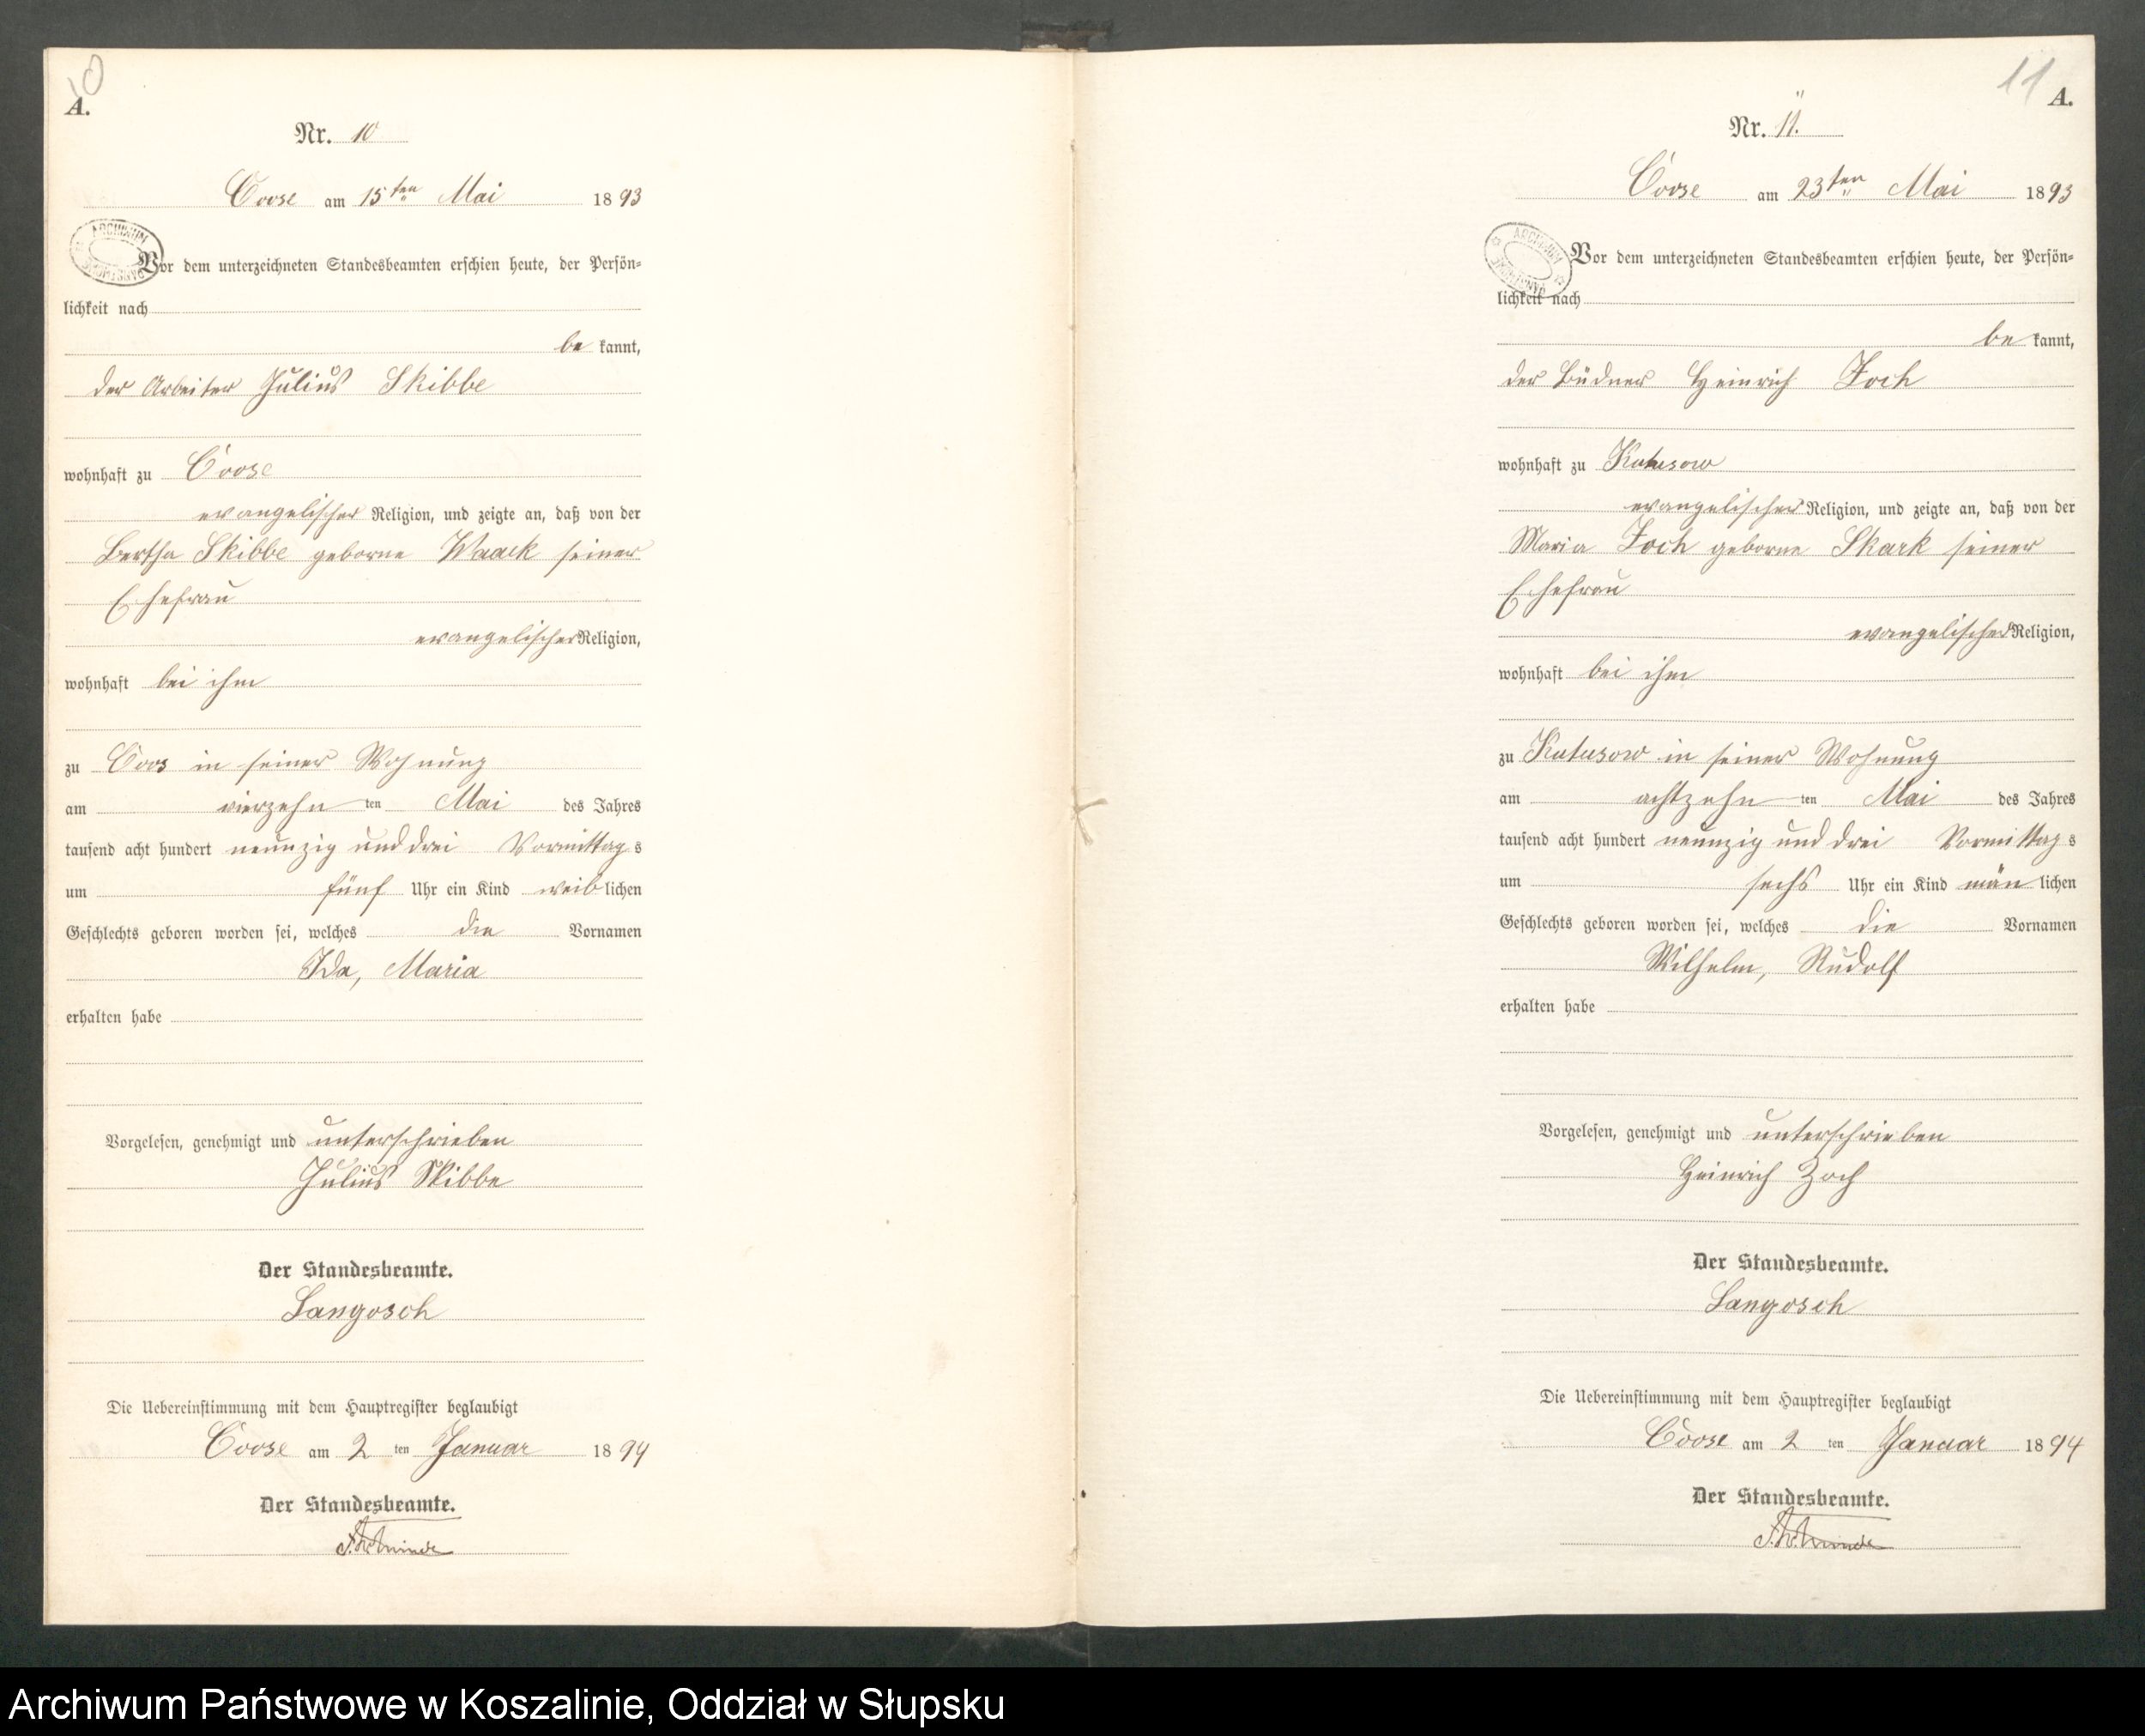 10
A.
Nr. 10
Coose am 15ten Mai 1893
ARCHIWUM PAŃSTWOWE
Vor dem unterzeichneten Standesbeamten erschien heute, der Persön-
lichkeit nach
be kannt,
der Arbeiter Julius Skibbe
wohnhaft zu Coose
evangelischer Religion, und zeigte an, daß von der
Bertha Skibbe geborne Waack seiner
Ehefrau
evangelischer Religion,
wohnhaft bei ihm
zu Coos in seiner Wohnung
am vierzehn ten Mai des Jahres
tausend acht hundert neunzig und drei Vormittag s
um fünf Uhr ein Kind weib lichen
Geschlechts geboren worden sei, welches die Vornamen
Ida, Maria
erhalten habe
Vorgelesen, genehmigt und unterschrieben
Julius Skibbe
Der Standesbeamte.
Langosch
Die Uebereinstimmung mit dem Hauptregister beglaubigt
Coose am 2 ten Januar 1894
Der Standesbeamte.
11
A.
Nr. 11.
Coose am 23ten Mai 1893
ARCHIWUM PAŃSTWOWE
Vor dem unterzeichneten Standesbeamten erschien heute, der Persön-
lichkeit nach
be kannt,
der Büdner Heinrich Zoch
wohnhaft zu Kutusow
evangelischer Religion, und zeigte an, daß von der
Maria Zoch geborne Skark seiner
Ehefrau
evangelischer Religion,
wohnhaft bei ihm
zu Kutusow in seiner Wohnung
am achtzehn ten Mai des Jahres
tausend acht hundert neunzig und drei Vormittag s
um sechs Uhr ein Kind män lichen
Geschlechts geboren worden sei, welches die Vornamen
Wilhelm, Rudolf
erhalten habe
Vorgelesen, genehmigt und unterschrieben
Heinrich Zoch
Der Standesbeamte.
Langosch
Die Uebereinstimmung mit dem Hauptregister beglaubigt
Coose am 2 ten Januar 1894
Der Standesbeamte.
Archiwum Państwowe w Koszalinie, Oddział w Słupsku